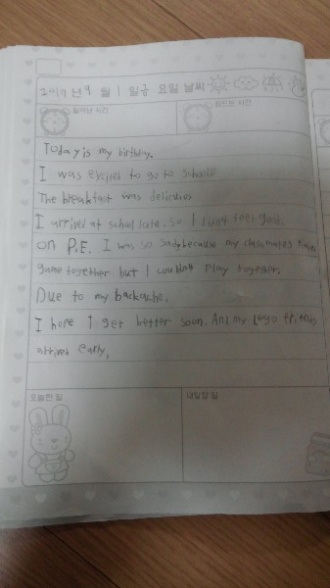 2019 년 9 월 1 일 금 요일 날씨
일어난 시간
잠드는 시간
Today is my birthday.
I was excited to go to school
The breakfast was delicious
I arrived at school late. so I feel
on P.E. I was so sady because my classmates
game together but I couldn't play together.
Due to my backache.
I hope I get better soon. And my Lego friends
arrived early,
오늘한 일
내일할 일